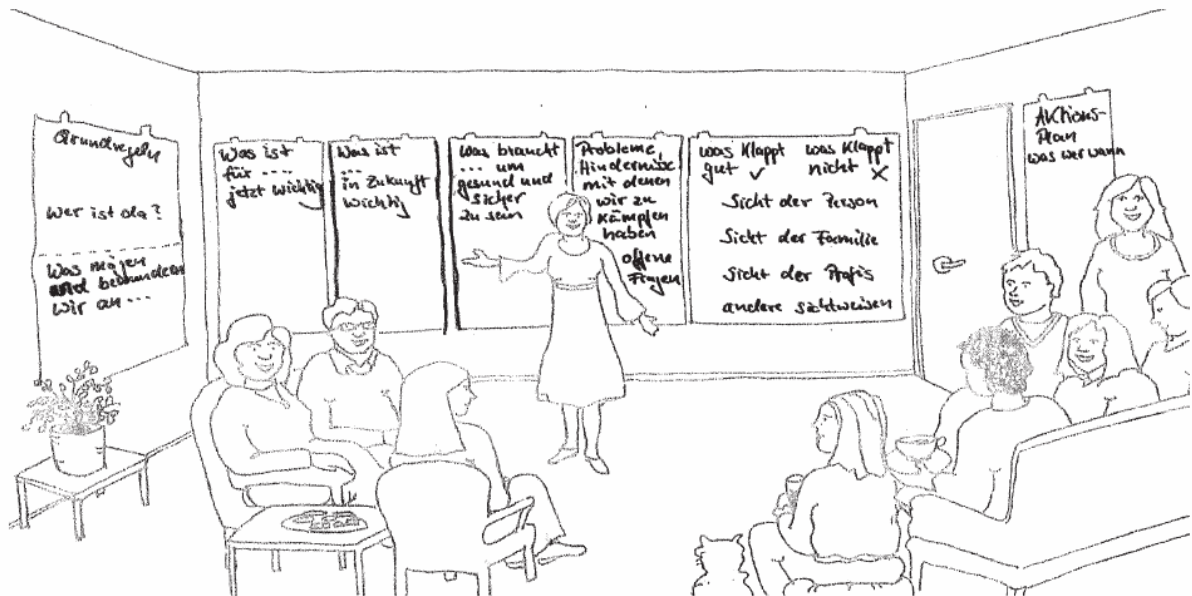 Grundregeln
Wer ist da?
Was mögen
und bewundern
wir an ...
Was ist
für ....
jetzt wichtig
Was ist
...
in Zukunft
wichtig
Was braucht
... um
gesund und
sicher
zu sein
Probleme,
Hindernisse
mit denen
wir zu
kämpfen
haben
offene
Fragen
was klappt gut ✓
was klappt nicht ✗
Sicht der Person
Sicht der Familie
Sicht der Profis
andere Sichtweisen
Aktions-
Plan
was wer wann